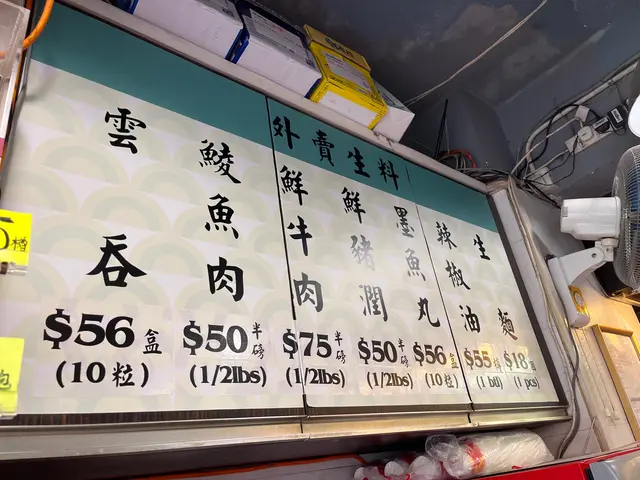 外賣生料
雲吞
$56盒
(10粒)
鯪魚肉
$50半磅
(1/2lbs)
鮮牛肉
$75半磅
(1/2lbs)
鮮豬潤
$50半磅
(1/2lbs)
墨魚丸
$56盒
(10粒)
辣椒油
$55樽
(1 btl)
生麵
$18個
(1 pcs)